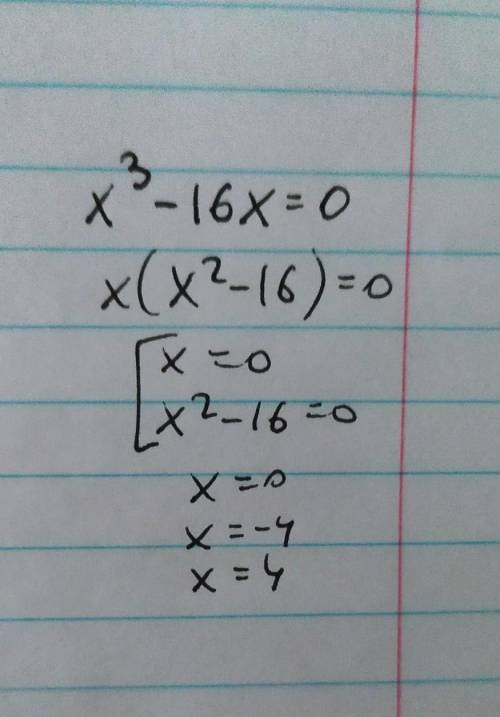 x³ - 16x = 0
x(x² - 16) = 0
[x = 0
x² - 16 = 0
x = 0
x = -4
x = 4